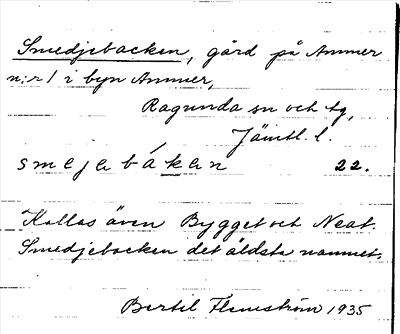 Smedjebacken, gård på Ammer
n:r 1 i byn Ammer,
Ragunda sn och tg,
Jämtl. l.
smejebáken 22.
Kallas även Bygget och Neat.
Smedjebacken det äldsta namnet.
Bertil Flemström 1935